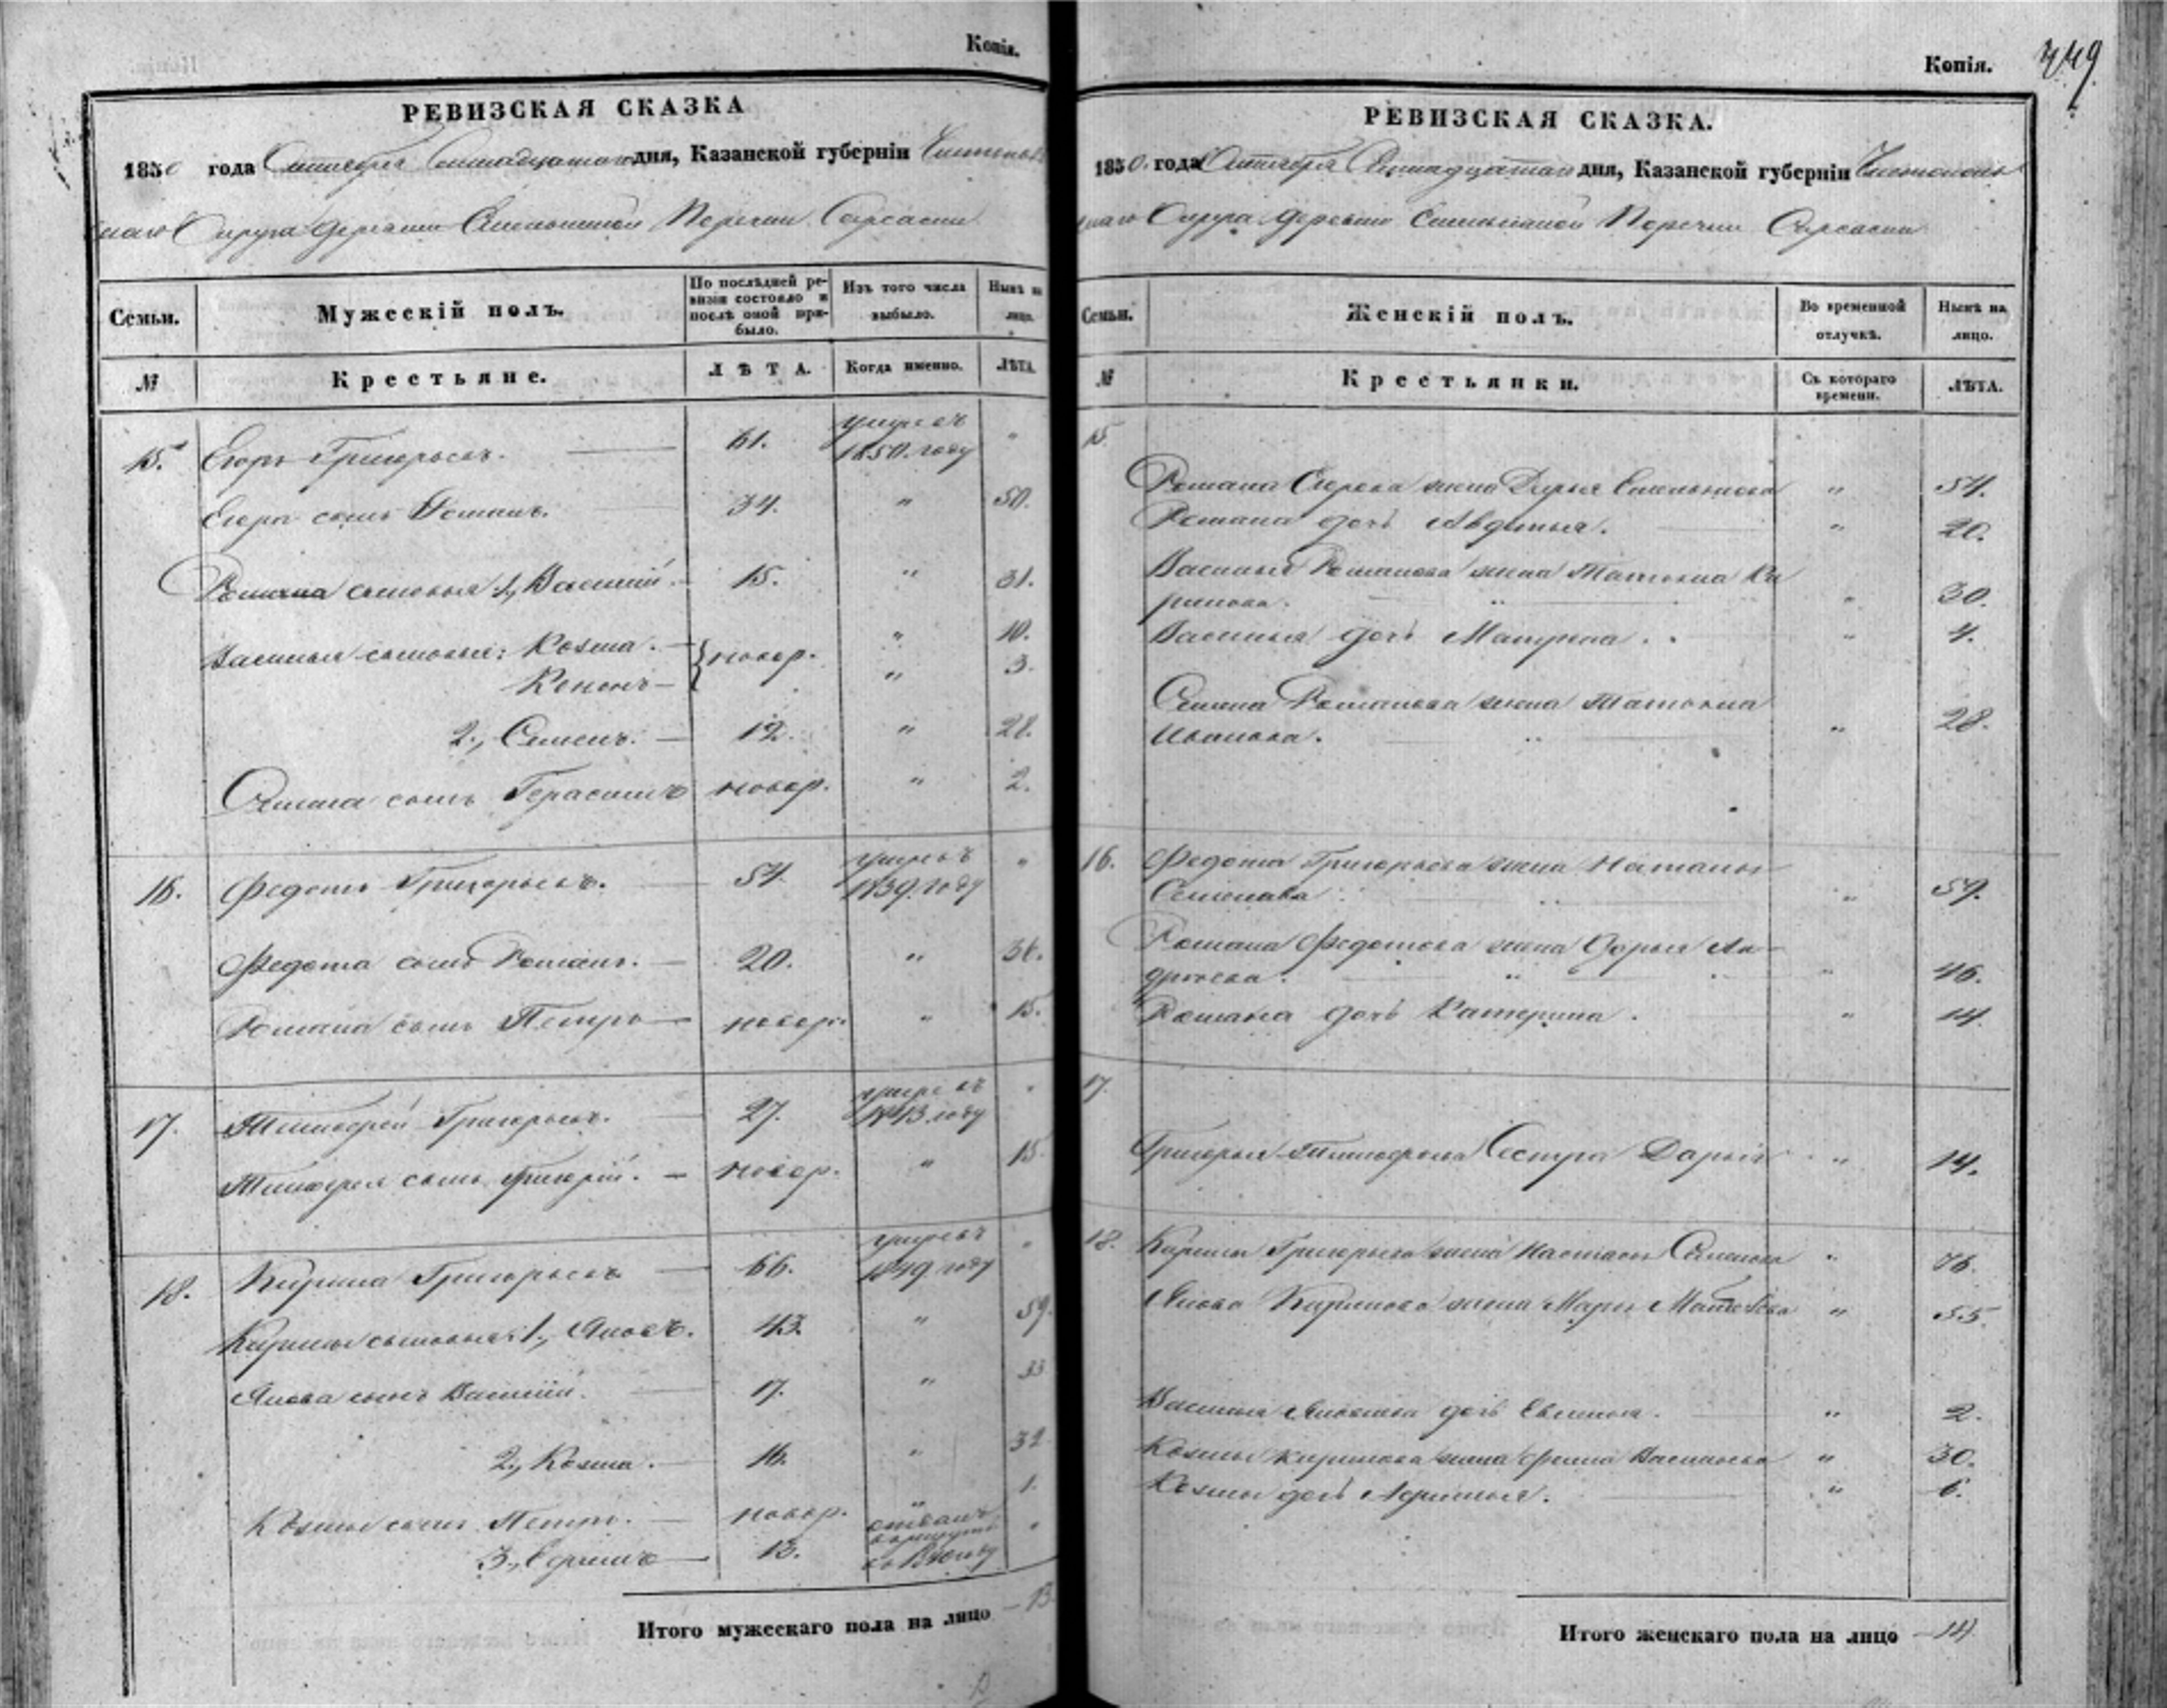 Копія.
РЕВИЗСКАЯ СКАЗКА
1850 года Октября Семнадцатаго дня, Казанской губерніи Чистополь
наго Округа деревни Емельяновой Поречни Сарсасы
Семьи.
Мужескій полъ.
По послѣдней ре-
визіи состояло и
послѣ оной при-
было.
Изъ того числа
выбыло.
Нынѣ на
лицо.
№
Крестьяне.
ЛѢТА.
Когда именно.
ЛѢТА.
15. Егоръ Григорьевъ. 61. умеръ въ 1850. году "
Егора сынъ Романъ. 34. " 50.
Романа сыновья 1, Василій. 15. " 31.
Василья сыновья: Козма. новор. " 10.
Кононъ " 3.
2, Семенъ. 12. " 28.
Семена сынъ Герасимъ новор. " 2.
16. Федотъ Григорьевъ. 54. умеръ въ 1839. году "
Федота сынъ Романъ. 20. " 36.
Романа сынъ Петръ новор. " 15.
17. Тимофей Григорьевъ. 27. умеръ въ 1843. году "
Тимофея сынъ Григорій. новор. " 15.
18. Кирила Григорьевъ 66. умеръ въ 1849. году "
Кирилы сыновья: 1, Яковъ. 43. " 59.
Якова сынъ Василій. 17. " 33
2, Козма. 16. " 32
Козмы сынъ Петръ. новор. " 1.
3, 13. "
Итого мужескаго пола на лицо 13
Копія.
449
РЕВИЗСКАЯ СКАЗКА.
1850. года Октября Семнадцатаго дня, Казанской губерніи Чистополь
наго Округа деревни Емельяновой Поречни Сарсасы
Семьи.
Женскій полъ.
Во временной
отлучкѣ.
Нынѣ на
лицо.
№
Крестьянки.
Съ котораго
времени.
ЛѢТА.
15
Романа Егорова жена Дарья Емельянова " 54.
Романа дочь Авдотья. " 20.
Василья Романова жена Татьяна Ки
рилова. " 30.
Василья дочь Матрена. " 4.
Семена Романова жена Татьяна
Иванова. " 28.
16. Федота Григорьева жена Наталья
Семенова " 59.
Романа Федотова жена Дарья Ан
дреева. " 46.
Романа дочь Катерина. " 14.
17.
Григорья Тимофеева Сестра Дарья " 14.
18. Кирилы Григорьева жена Настасья Семенова " 76.
Якова Кирилова жена Марья Матвѣева " 55.
Василья Яковлева дочь " 2.
Козмы Кирилова жена Васильева " 30.
Козмы дочь " 6.
Итого женскаго пола на лицо 14